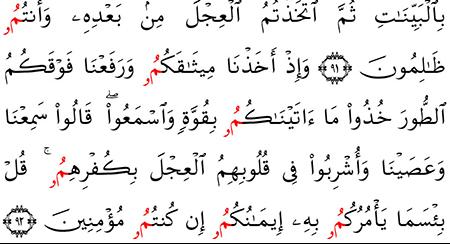 بِٱلْبَيِّنَٰتِ ثُمَّ ٱتَّخَذتُّمُ ٱلْعِجْلَ مِنۢ بَعْدِهِۦ وَأَنتُمُۥ
ظَٰلِمُونَ ﴿٩١﴾ وَإِذْ أَخَذْنَا مِيثَٰقَكُمُۥ وَرَفَعْنَا فَوْقَكُمُ
ٱلطُّورَ خُذُوا۟ مَا ءَاتَيْنَٰكُمُۥ بِقُوَّةٍ وَٱسْمَعُوا۟ۖ قَالُوا۟ سَمِعْنَا
وَعَصَيْنَا وَأُشْرِبُوا۟ فِى قُلُوبِهِمُ ٱلْعِجْلَ بِكُفْرِهِمُۥۚ قُلْ
بِئْسَمَا يَأْمُرُكُمُۥ بِهِۦٓ إِيمَٰنُكُمُۥٓ إِن كُنتُمُۥ مُؤْمِنِينَ ﴿٩٢﴾